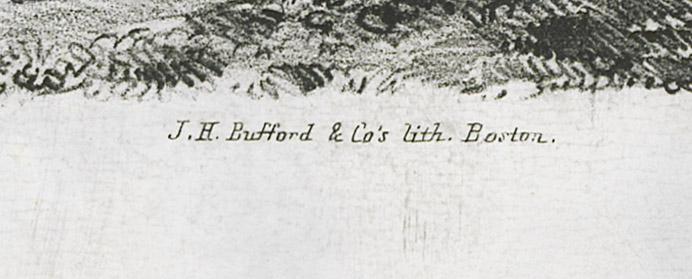 J. H. Bufford & Co's lith. Boston.